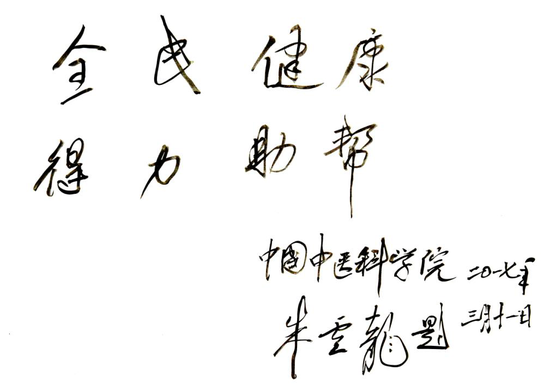 全民健康
得力助帮
中国中医科学院 二〇一七年
朱云龙题 三月十一日